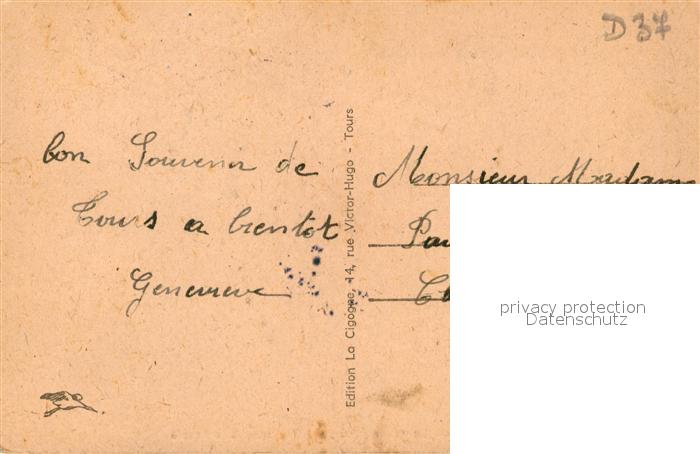 D 37
bon Souvenir de
Tours a bientot
Genevieve
Edition La Cigogne, 14, rue Victor-Hugo - Tours
Monsieur Madame
privacy protection
Datenschutz